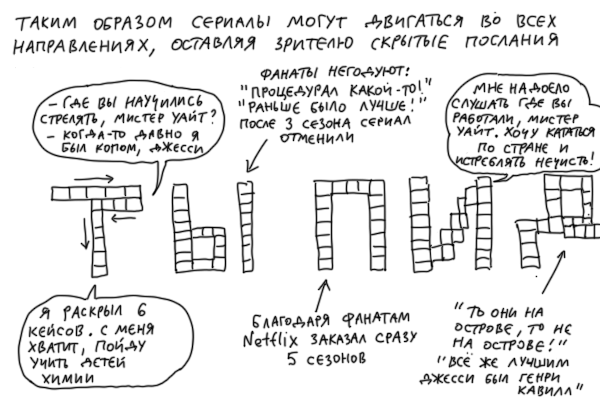 ТАКИМ ОБРАЗОМ СЕРИАЛЫ МОГУТ ДВИГАТЬСЯ ВО ВСЕХ
НАПРАВЛЕНИЯХ, ОСТАВЛЯЯ ЗРИТЕЛЮ СКРЫТЫЕ ПОСЛАНИЯ
- ГДЕ ВЫ НАУЧИЛИСЬ
СТРЕЛЯТЬ, МИСТЕР УАЙТ?
- КОГДА-ТО ДАВНО Я
БЫЛ КОПОМ, ДЖЕССИ
ФАНАТЫ НЕГОДУЮТ:
"ПРОЦЕДУРАЛ КАКОЙ-ТО!"
"РАНЬШЕ БЫЛО ЛУЧШЕ!"
ПОСЛЕ 3 СЕЗОНА СЕРИАЛ
ОТМЕНИЛИ
МНЕ НАДОЕЛО
СЛУШАТЬ ГДЕ ВЫ
РАБОТАЛИ, МИСТЕР
УАЙТ. ХОЧУ КАТАТЬСЯ
ПО СТРАНЕ И
ИСТРЕБЛЯТЬ НЕЧИСТЬ!
ТЫ ПИД
Я РАСКРЫЛ 6
КЕЙСОВ. С МЕНЯ
ХВАТИТ, ПОЙДУ
УЧИТЬ ДЕТЕЙ
ХИМИИ
БЛАГОДАРЯ ФАНАТАМ
Netflix ЗАКАЗАЛ СРАЗУ
5 СЕЗОНОВ
"ТО ОНИ НА
ОСТРОВЕ, ТО НЕ
НА ОСТРОВЕ!"
"ВСЁ ЖЕ ЛУЧШИМ
ДЖЕССИ БЫЛ ГЕНРИ
КАВИЛЛ"